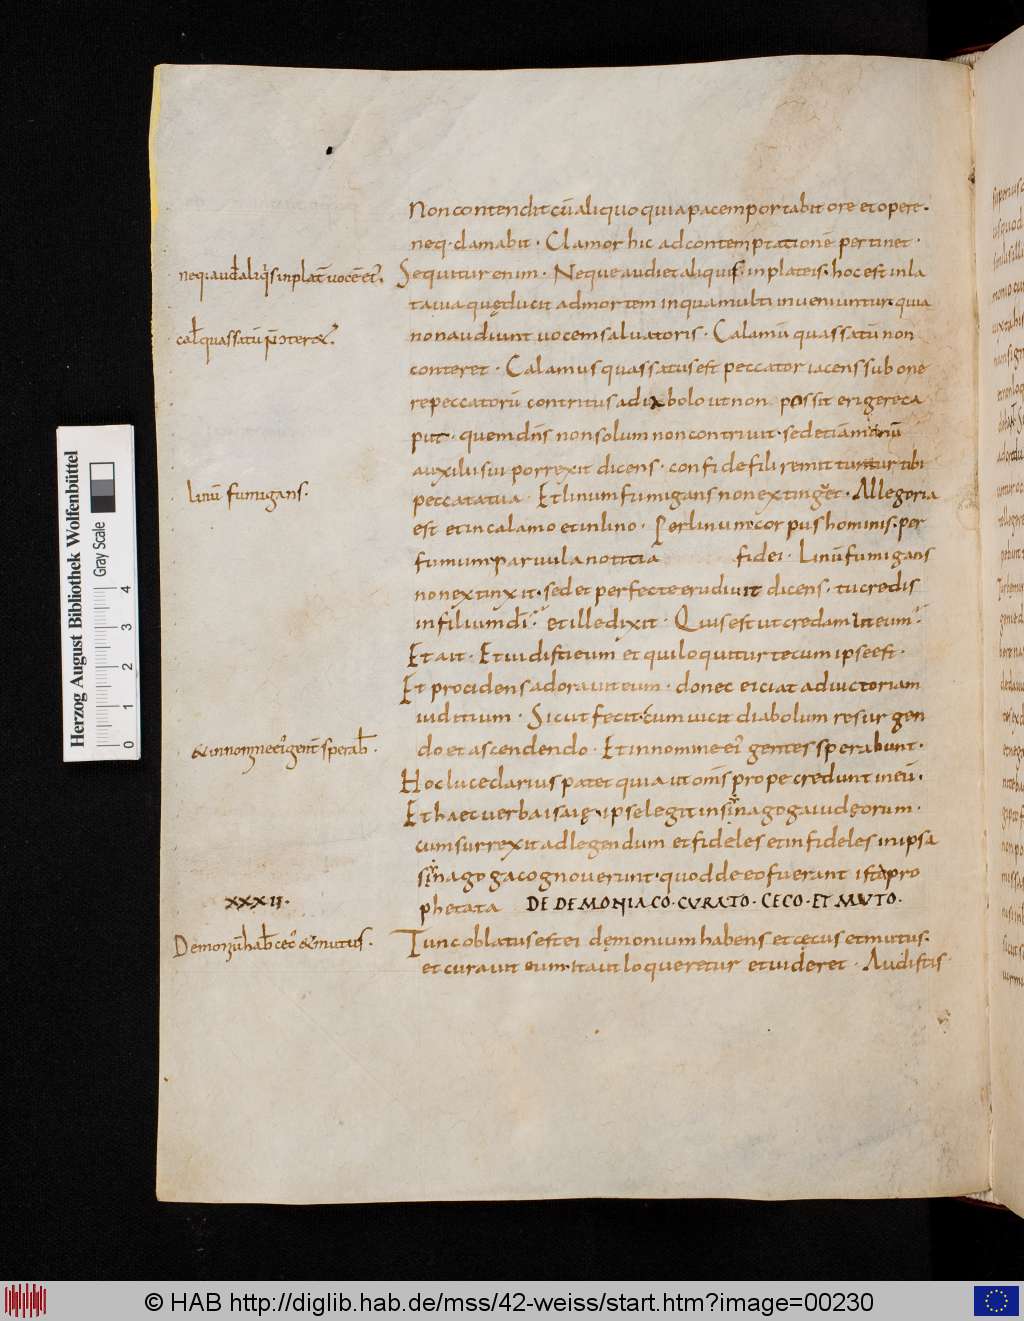 Non contendit cū aliquo quia pacem portabit ore et opere.
neq. clamabit. Clamor hic ad contemptationē pertinet.
Sequitur enim. Neque audiet aliquis. in plateis. hoc est in la
ta uia quę ducit ad mortem in qua multi inueniuntur. quia
non audiunt uocem saluatoris. Calamū quassatū non
conteret. Calamus quassatus est peccator iacens sub one
re peccatorū contritus a diabolo ut non possit erigere ca
put. quem dn̄s non solum non contriuit. sed etiā manū
auxilii sui porrexit dicens. confide fili remittuntur tibi
peccata tua. Et linum fumigans non extinguet. Allegoria
est et in calamo et in lino. Per linum corpus hominis. per
fumum paruula notitia fidei. Linū fumigans
non extinxit. sed et perfecte erudiuit dicens. tu credis
in filium dī. et ille dixit. Quis est ut credam in eum.
Et ait. Et uidisti eum et qui loquitur tecum ipse est.
Et procidens adorauit eum. donec eiciat ad uictoriam
iuditium. Sicut fecit. cum uicit diabolum resurgen
do et ascendendo. Et in nomine ei gentes sperabunt.
Hoc luce clarius patet quia ut om̄s prope credunt in eū.
Et haec uerba isaię. ipse legit in sinagoga iudęorum.
cum surrexit ad legendum et fideles et infideles in ipsa
sinagoga cognouerunt. quod de eo fuerant ista pro
phetata DE DEMONIACO. CURATO. CECO. ET MUTO.
Tunc oblatus est ei dęmonium habens et cęcus et mutus.
et curauit eum. ita ut loqueretur et uideret. Audistis
linū fumigans.
XXXII.
Herzog August Bibliothek Wolfenbüttel
Gray Scale
0 1 2 3 4
© HAB http://diglib.hab.de/mss/42-weiss/start.htm?image=00230